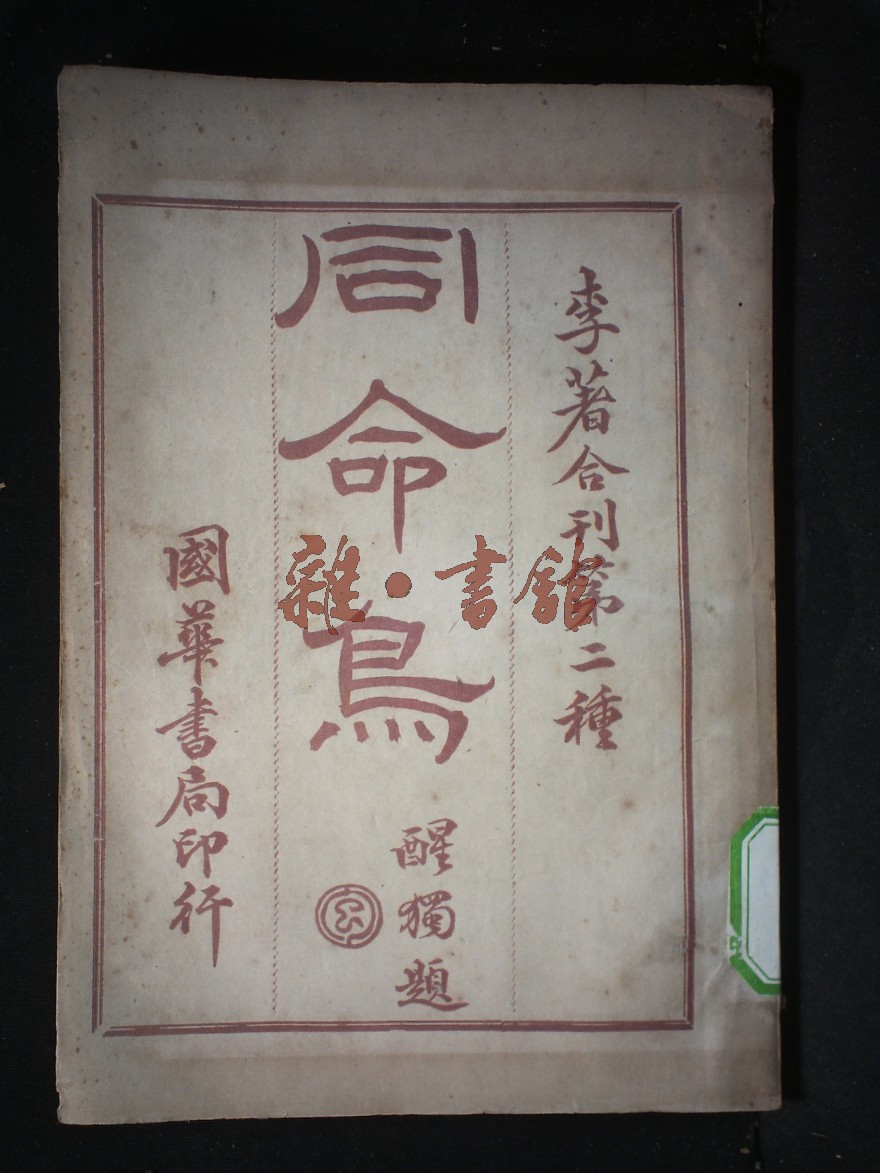 李著合刊第二種
同命鳥
醒獨題
國華書局印行
雜·書館